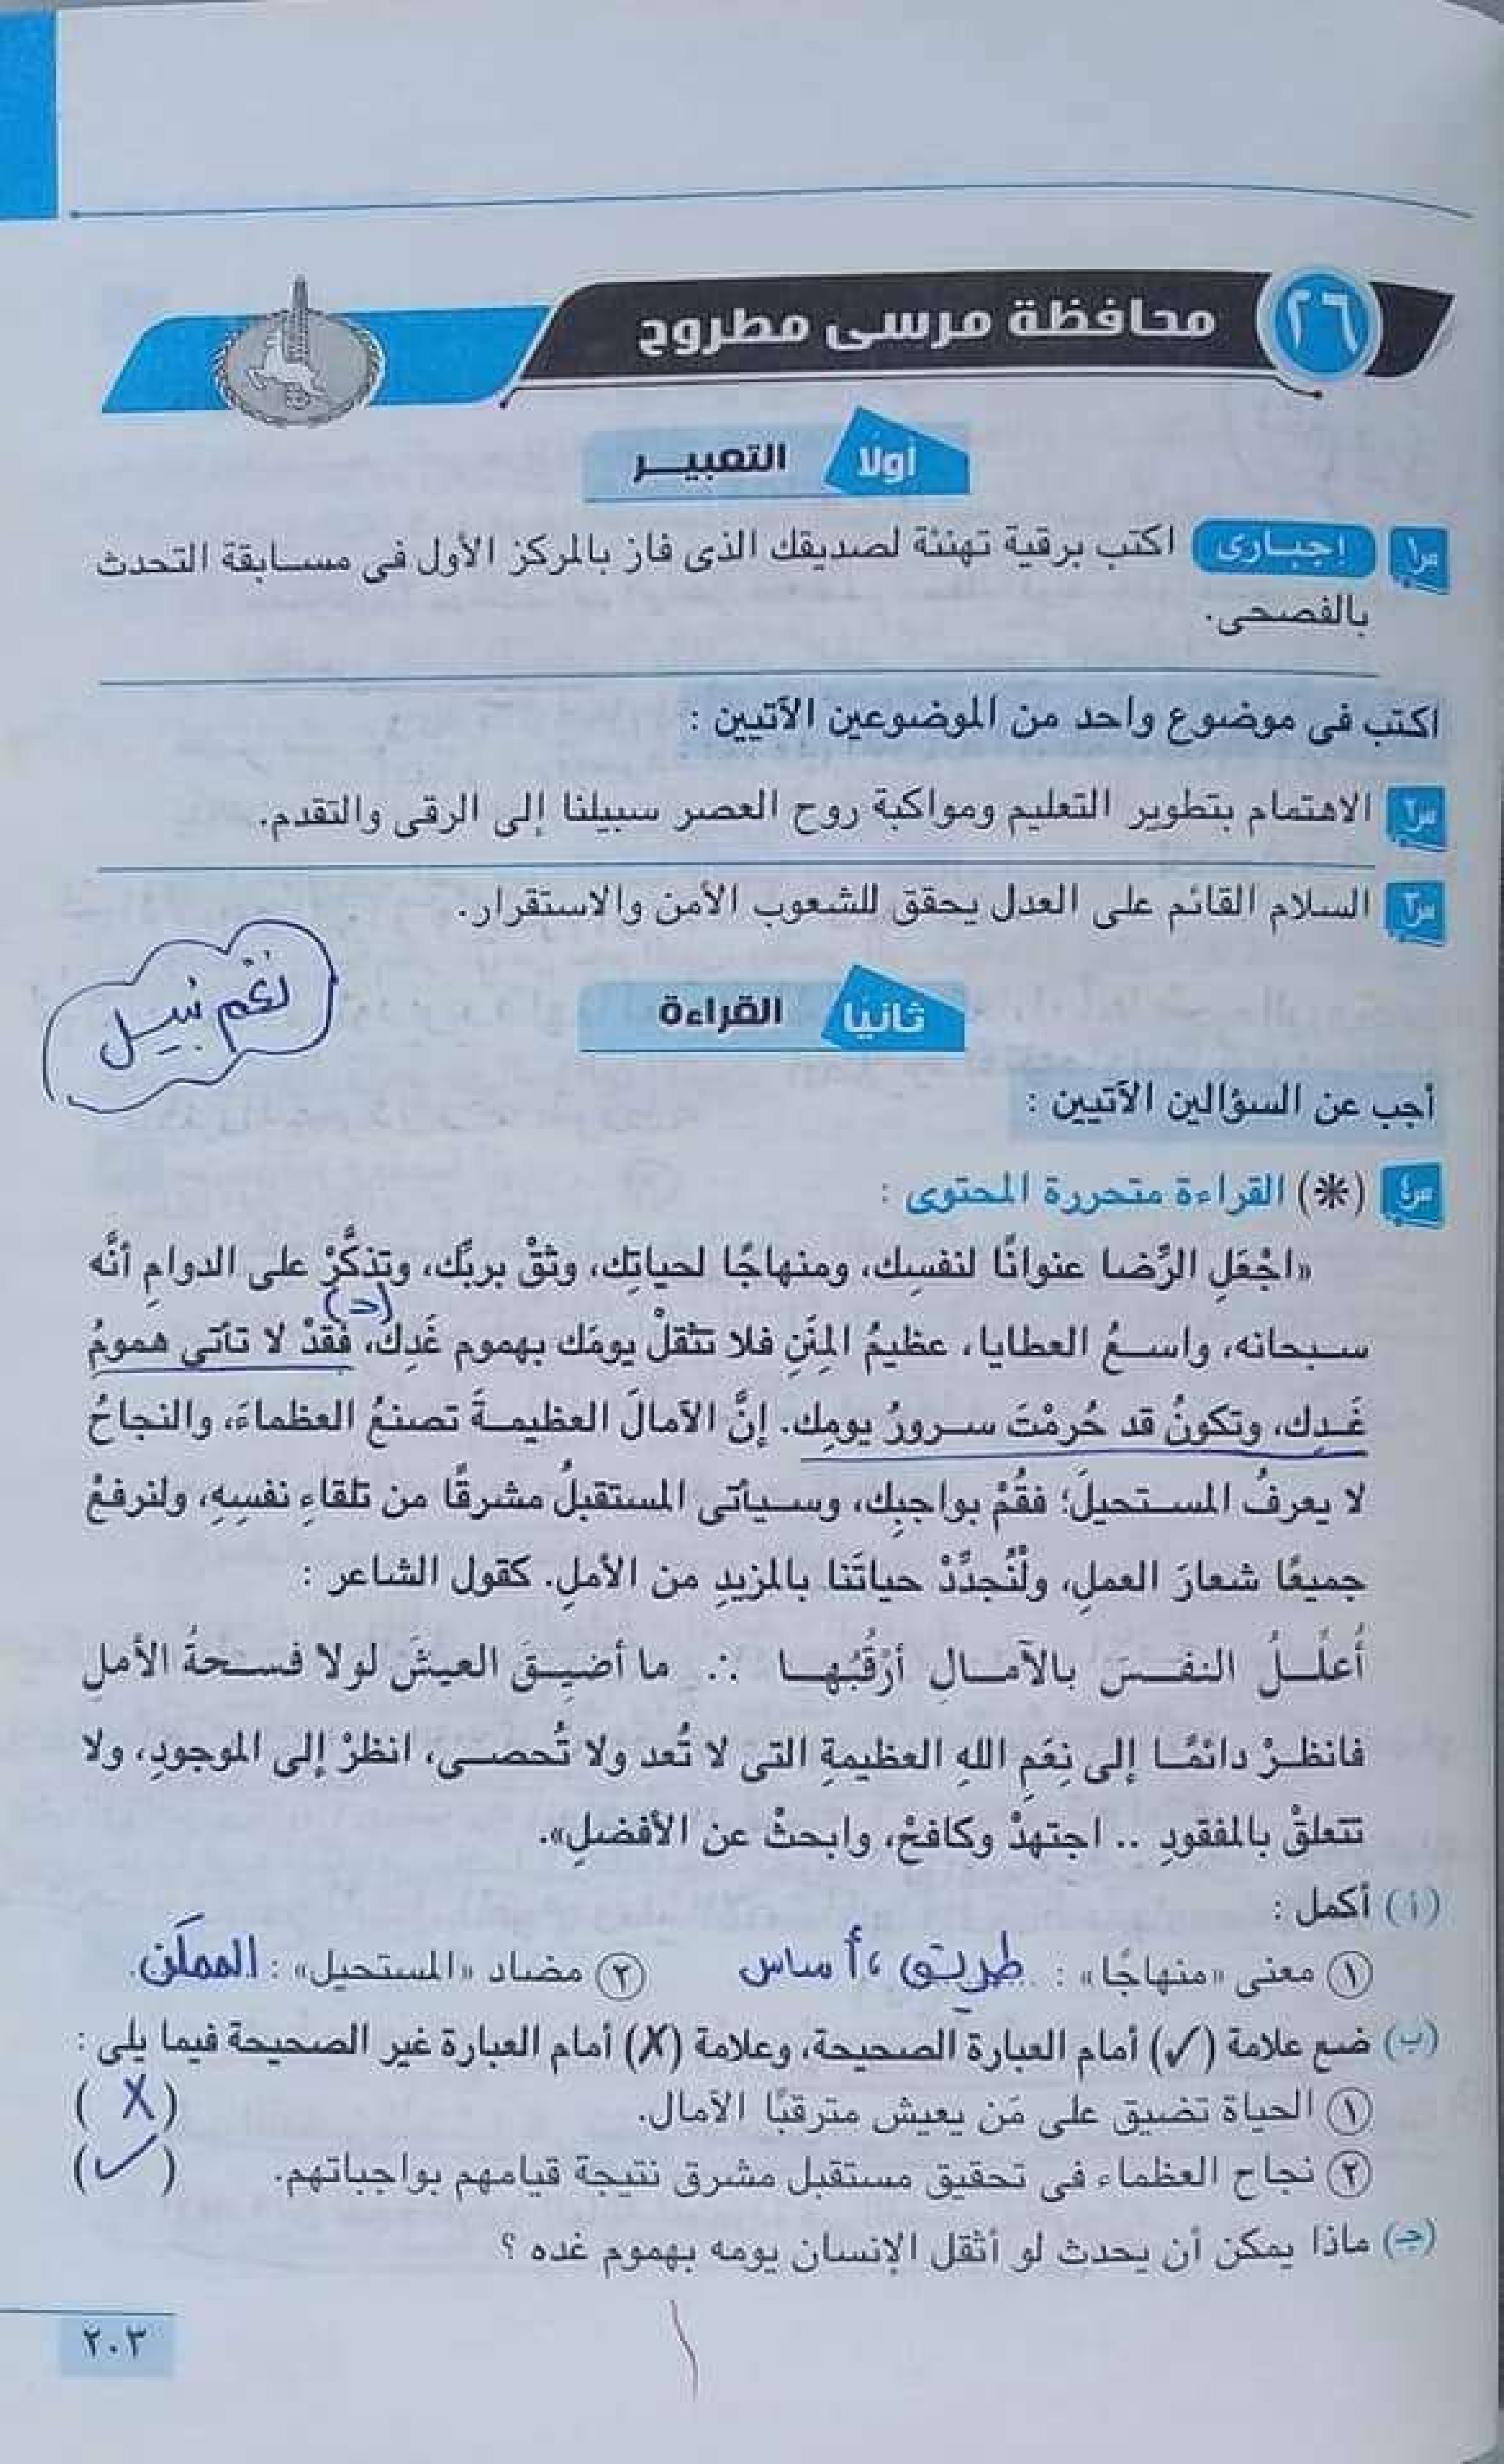 ٢٦ محافظة مرسى مطروح
أولًا التعبيــر
س١ إجبارى اكتب برقية تهنئة لصديقك الذى فاز بالمركز الأول فى مسابقة التحدث
بالفصحى.
اكتب فى موضوع واحد من الموضوعين الآتيين :
س٢ الاهتمام بتطوير التعليم ومواكبة روح العصر سبيلنا إلى الرقى والتقدم.
س٣ السلام القائم على العدل يحقق للشعوب الأمن والاستقرار.
نغم نبيل
ثانيًا القراءة
أجب عن السؤالين الآتيين :
س٤ (*) القراءة متحررة المحتوى :
«اجْعَلِ الرِّضا عنوانًا لنفسِك، ومنهاجًا لحياتِك، وثقْ بربِّك، وتذكَّرْ على الدوامِ أنَّه
(ج)
سبحانه، واسعُ العطايا، عظيمُ المِنَنِ فلا تثقلْ يومَك بهموم غَدِك، فقدْ لا تأتى همومُ
غَدِك، وتكونُ قد حُرمْتَ سرورُ يومِك. إنَّ الآمالَ العظيمةَ تصنعُ العظماءَ، والنجاحُ
لا يعرفُ المستحيلَ؛ فقُمْ بواجبِك، وسيأتى المستقبلُ مشرقًا من تلقاءِ نفسِهِ، ولنرفعْ
جميعًا شعارَ العملِ، ولْنُجدِّدْ حياتَنا بالمزيدِ من الأملِ. كقول الشاعر :
أُعلِّلُ النفسَ بالآمالِ أرْقُبُها ∴ ما أضيقَ العيشَ لولا فسحةُ الأملِ
فانظرْ دائمًا إلى نِعَمِ اللهِ العظيمةِ التى لا تُعد ولا تُحصى، انظرْ إلى الموجودِ، ولا
تتعلقْ بالمفقودِ .. اجتهدْ وكافحْ، وابحثْ عن الأفضلِ».
(أ) أكمل :
١ معنى «منهاجًا» : طريق، أساس ٢ مضاد «المستحيل» : الممكن.
(ب) ضع علامة (✓) أمام العبارة الصحيحة، وعلامة (X) أمام العبارة غير الصحيحة فيما يلى :
١ الحياة تضيق على مَن يعيش مترقبًا الآمال. (X)
٢ نجاح العظماء فى تحقيق مستقبل مشرق نتيجة قيامهم بواجباتهم. (✓)
(جـ) ماذا يمكن أن يحدث لو أثقل الإنسان يومه بهموم غده ؟
٢٠٣